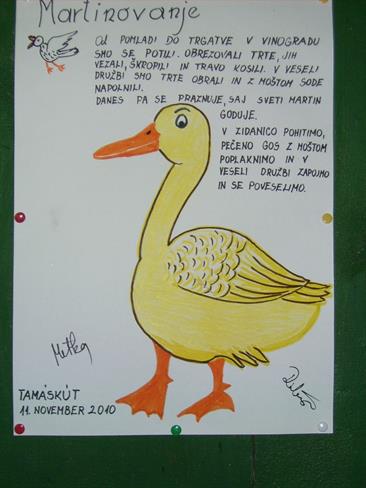 Martinovanje
OD POMLADI DO TRGATVE V VINOGRADU
SMO SE POTILI. OBREZOVALI TRTE, JIH
VEZALI, ŠKROPILI IN TRAVO KOSILI. V VESELI
DRUŽBI SMO TRTE OBRALI IN Z MOŠTOM SODE
NAPOLNILI.
DANES PA SE PRAZNUJE, SAJ SVETI MARTIN
GODUJE.
V ZIDANICO POHITIMO,
PEČENO GOS Z MOŠTOM
POPLAKNIMO IN V
VESELI DRUŽBI ZAPOJMO
IN SE POVESELIMO.
Metka
TAMÁSKÚT
11. NOVEMBER 2010